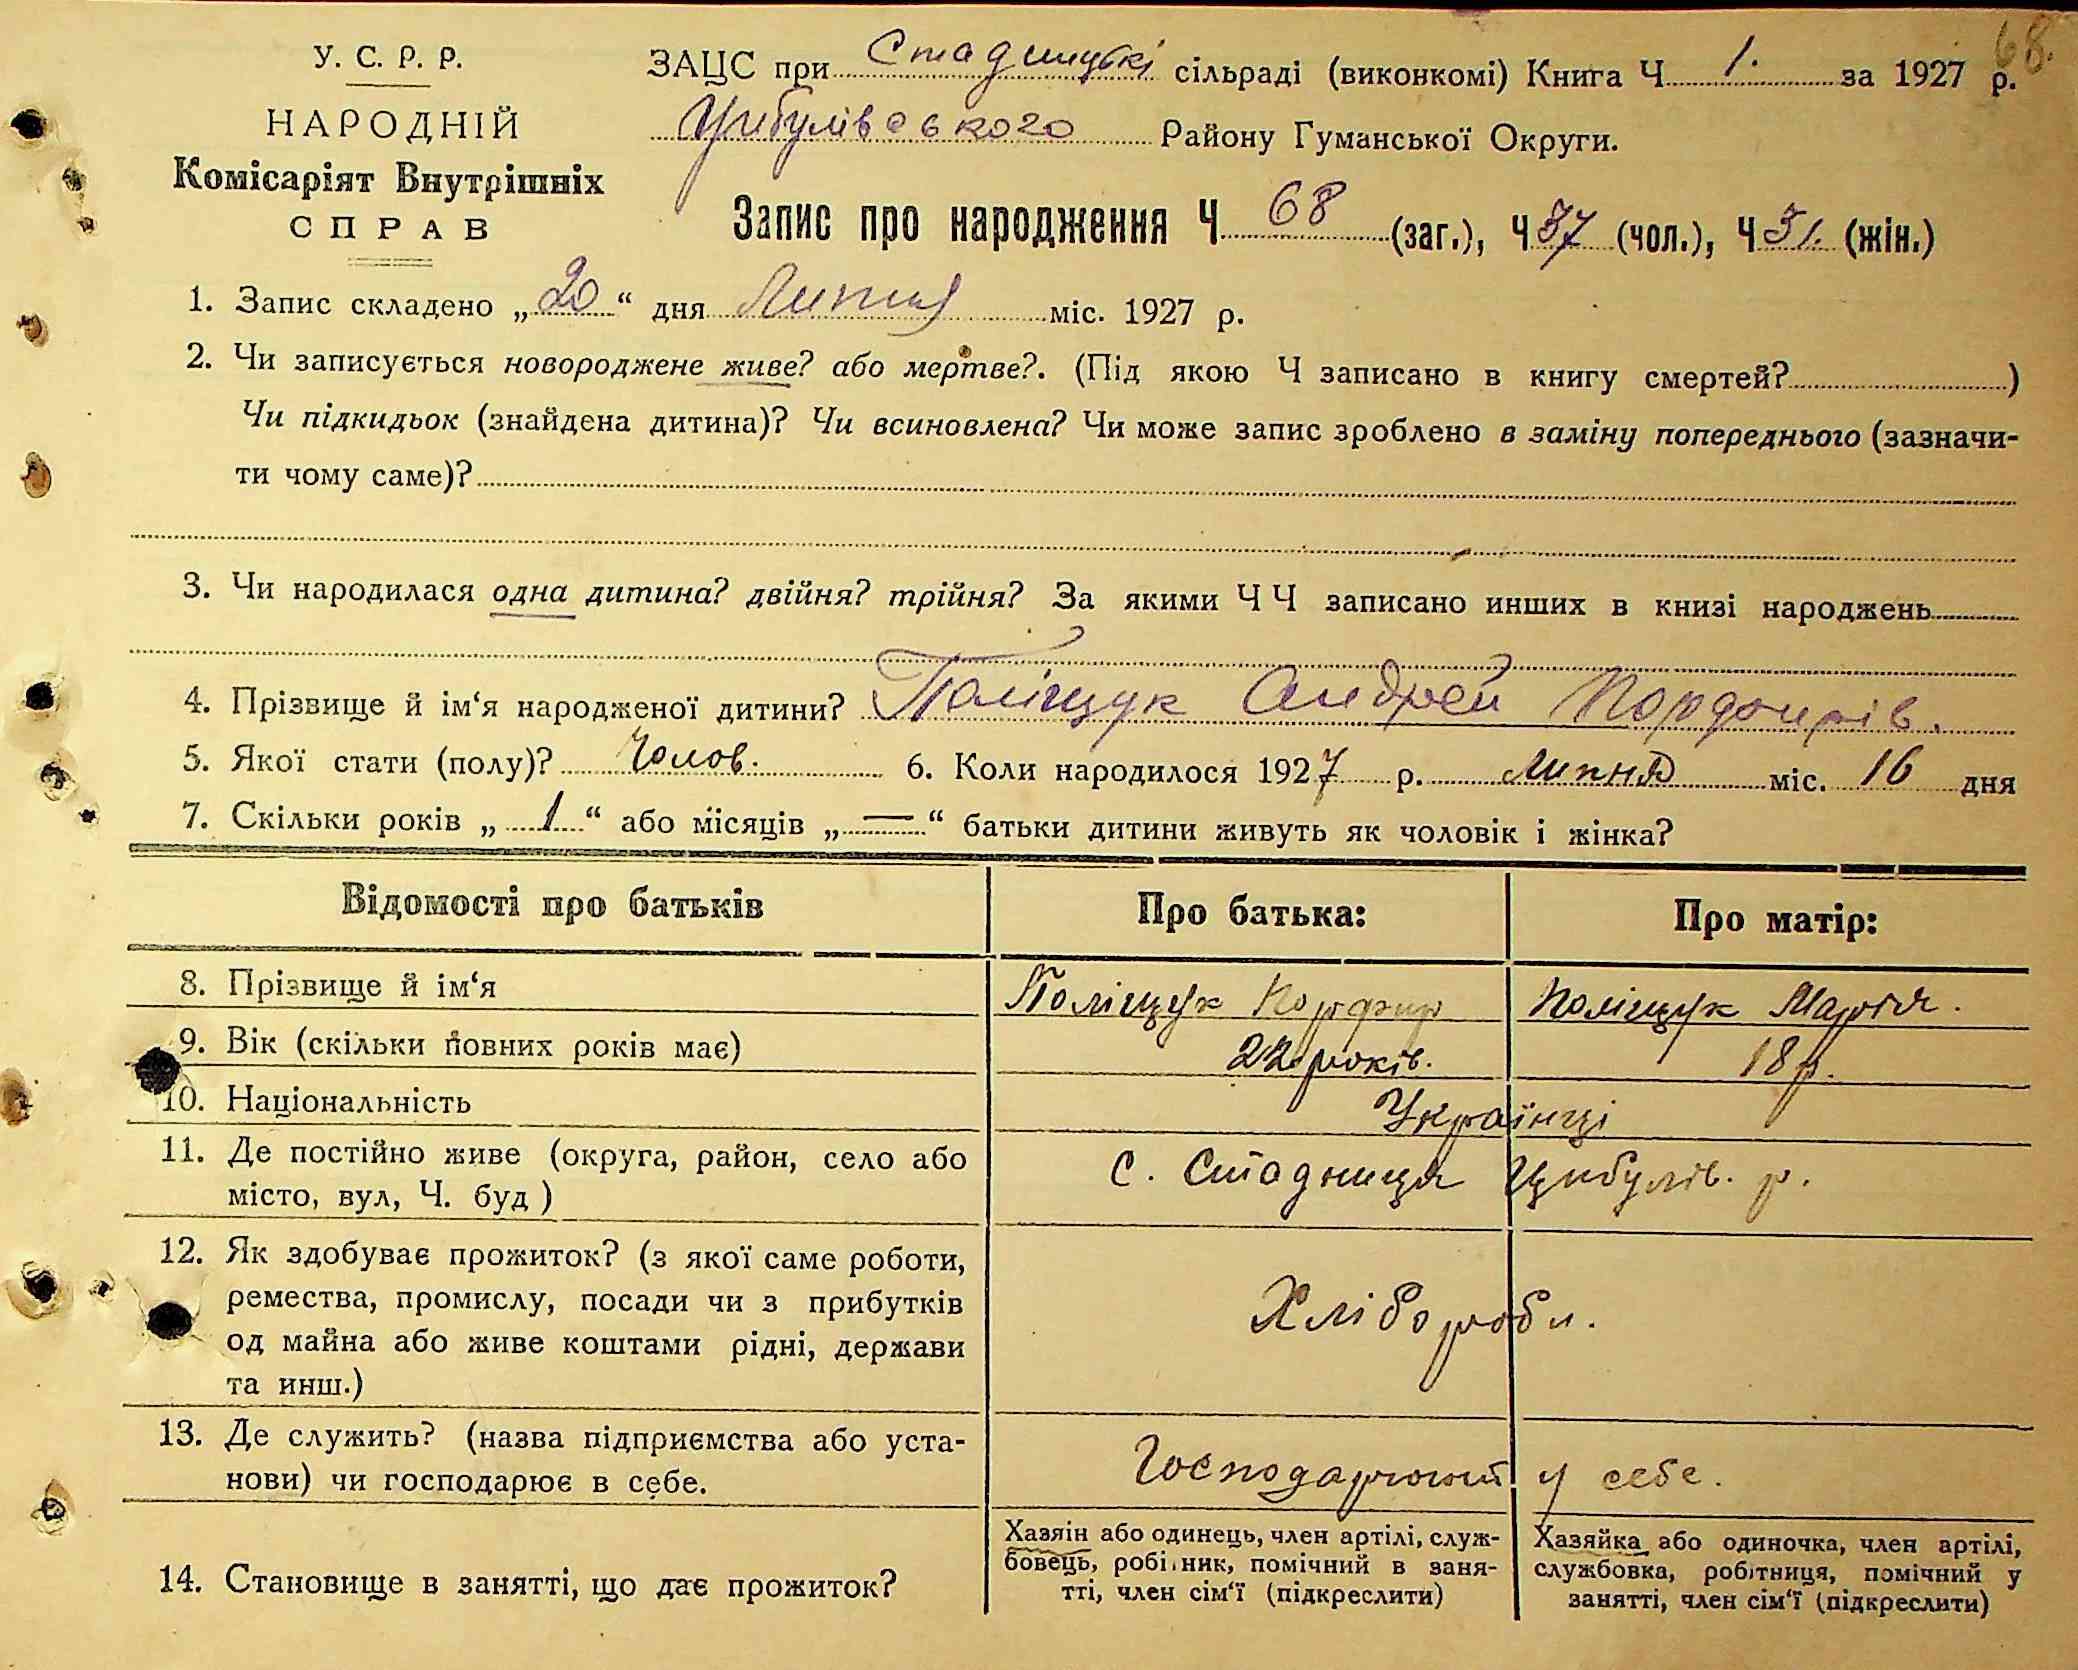 68.
У. С. Р. Р.
НАРОДНІЙ
Комісаріят Внутрішніх
СПРАВ
ЗАЦС при Стадницькі сільраді (виконкомі) Книга Ч 1. за 1927 р.
Цибулівського Району Гуманської Округи.
Запис про народження Ч 68 (заг.), Ч 37 (чол.), Ч 31. (жін.)
1. Запис складено „20“ дня Липня міс. 1927 р.
2. Чи записується новороджене живе? або мертве?. (Під якою Ч записано в книгу смертей? )
Чи підкидьок (знайдена дитина)? Чи всиновлена? Чи може запис зроблено в заміну попереднього (зазначи-
ти чому саме)?
3. Чи народилася одна дитина? двійня? трійня? За якими Ч Ч записано инших в книзі народжень
4. Прізвище й ім‘я народженої дитини? Поліщук Андрей
5. Якої стати (полу)? Чолов. 6. Коли народилося 1927 р. Липня міс. 16 дня
7. Скільки років „1“ або місяців „—“ батьки дитини живуть як чоловік і жінка?
Відомості про батьків Про батька: Про матір:
8. Прізвище й ім‘я Поліщук Порфир Поліщук Марія.
9. Вік (скільки повних років має) 22 років. 18 р.
10. Національність Українці
11. Де постійно живе (округа, район, село або
місто, вул, Ч. буд ) С. Стадниця Цибулів. р.
12. Як здобуває прожиток? (з якої саме роботи,
ремества, промислу, посади чи з прибутків
од майна або живе коштами рідні, держави
та инш.) Хлібороби.
13. Де служить? (назва підприємства або уста-
нови) чи господарює в себе. Господарюють у себе.
14. Становище в занятті, що дає прожиток?
Хазяін або одинець, член артілі, служ-
бовець, робі ник, помічний в заня-
тті, член сім‘ї (підкреслити)
Хазяйка або одиночка, член артілі,
службовка, робітниця, помічний у
занятті, член сім‘ї (підкреслити)